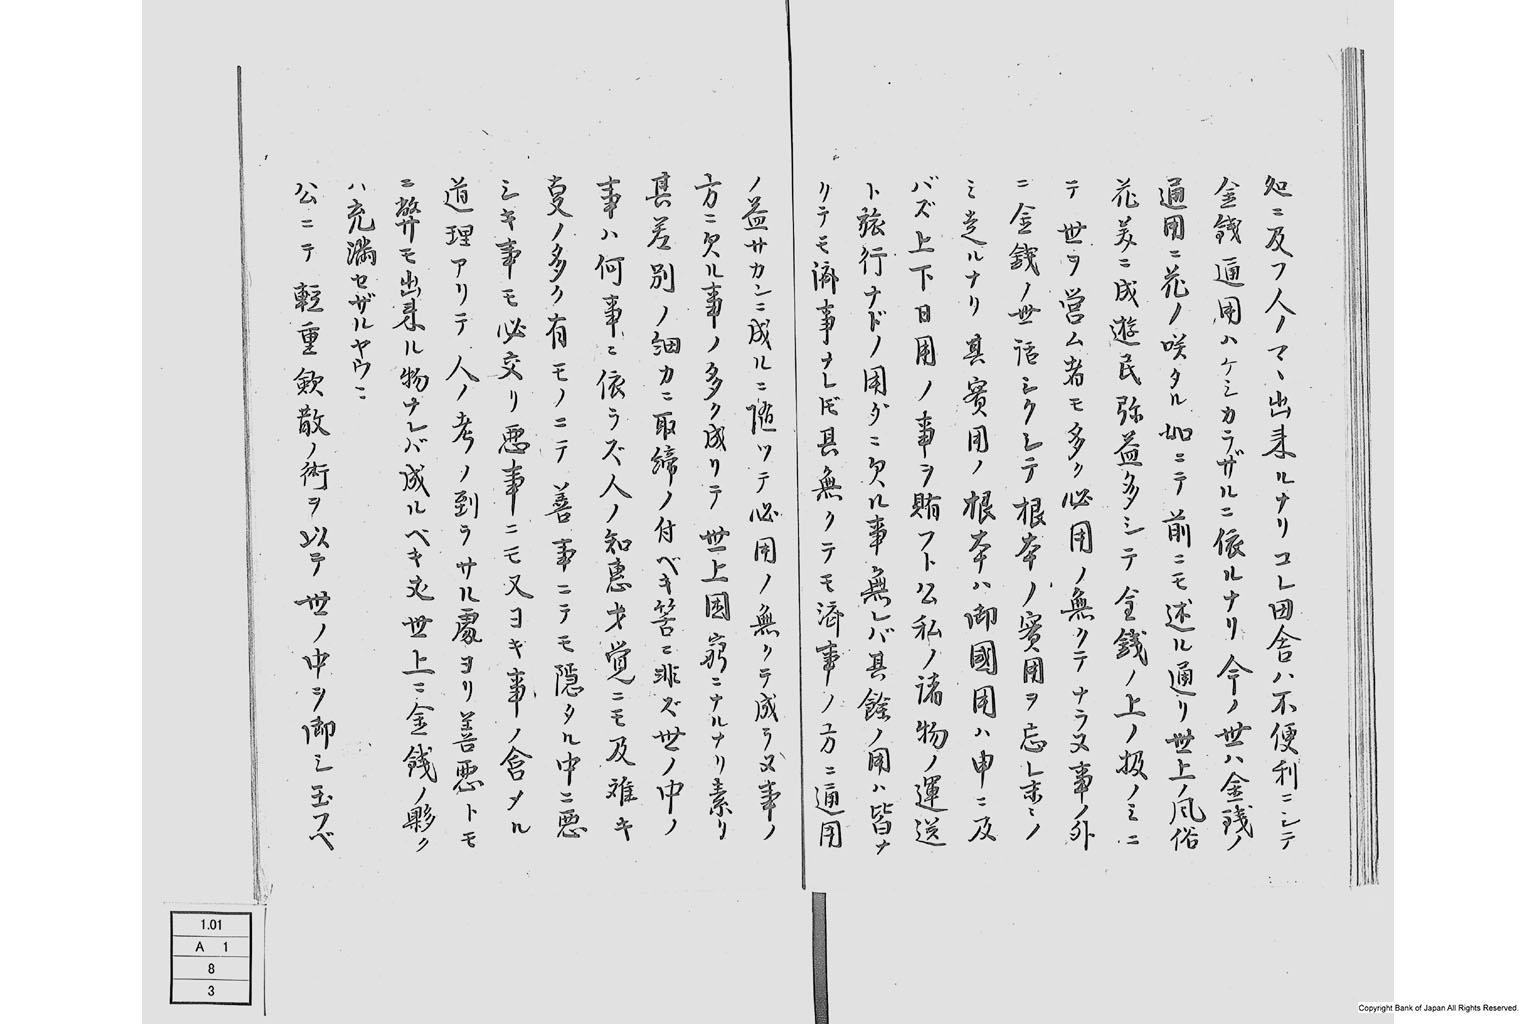 処ニ及フ人ノマヽ出来ルナリコレ田舎ハ不便利ニシテ
金銭通用ハケシカラザルニ依ルナリ今ノ世ハ金銭ノ
通用ニ花ノ咲タル如ニテ前ニモ述ル通リ世上ノ風俗
花美ニ成遊民弥益多シテ金銭ノ上ノ扱ノミニ
テ世ヲ営ム者モ多ク必用ノ無クテナラヌ事ノ外
ニ金銭ノ世話シクシテ根本ノ實用ヲ忘レ末ミノ
ミ走ルナリ其實用ノ根本ハ御國用ハ申ニ及
バズ上下日用ノ事ヲ賄フト公私ノ諸物ノ運送
ト旅行ナドノ用ダニ欠ル事無レバ其餘ノ用ハ皆ナ
クテモ済事ナレドモ其無クテモ済事ノ方ニ通用
ノ益サカンニ成ルニ随ツテ必用ノ無クテ成ラヌ事ノ
方ニ欠ル事ノ多ク成リテ世上困窮ニナルナリ素リ
其差別ノ細カニ取締ノ付ベキ筈ニ非ズ世ノ中ノ
事ハ何事ニ依ラズ人ノ知恵才覚ニモ及難キ
変ノ多ク有モノニテ善事ニテモ隠タル中ニ悪
シキ事モ必交リ悪事ニモ又ヨキ事ノ含メル
道理アリテ人ノ考ノ到ラサル處ヨリ善悪トモ
ニ弊モ出来ル物ナレバ成ルベキ丈世上ニ金銭ノ夥ク
ハ充満セザルヤウニ
公ニテ軽重斂散ノ術ヲ以テ世ノ中ヲ御シ玉フベ
1.01
A 1
8
3
Copyright Bank of Japan All Rights Reserved.